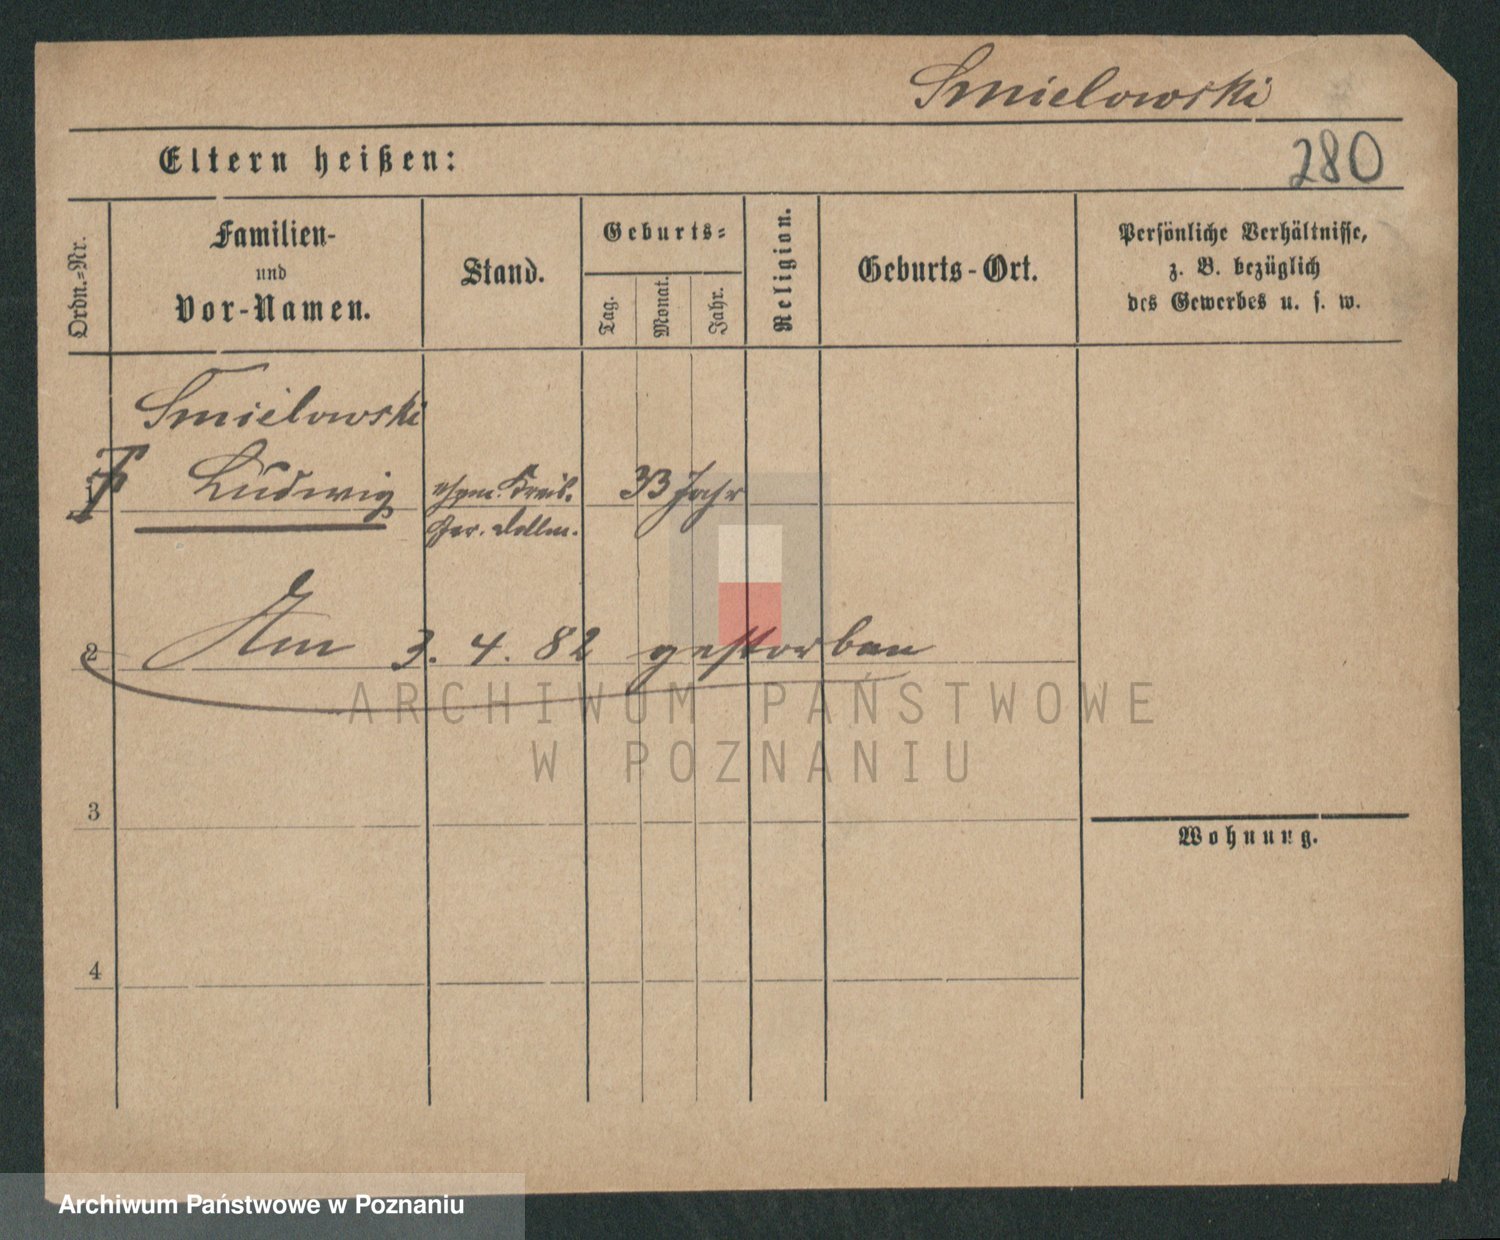 Smielowski
Eltern heißen:
280
Ordn.-Nr.
Familien-
und
Vor-Namen.
Stand.
Geburts-
Tag.
Monat.
Jahr.
Religion.
Geburts-Ort.
Persönliche Verhältnisse,
z. B. bezüglich
des Gewerbes u. s. w.
Smielowski
1 Ludwig ehem. Kreis. 33 Jahr
Ger. Dollm.
2 Am 3. 4. 82 gestorben
ARCHIWUM PAŃSTWOWE
W POZNANIU
3
Wohnung.
4
Archiwum Państwowe w Poznaniu